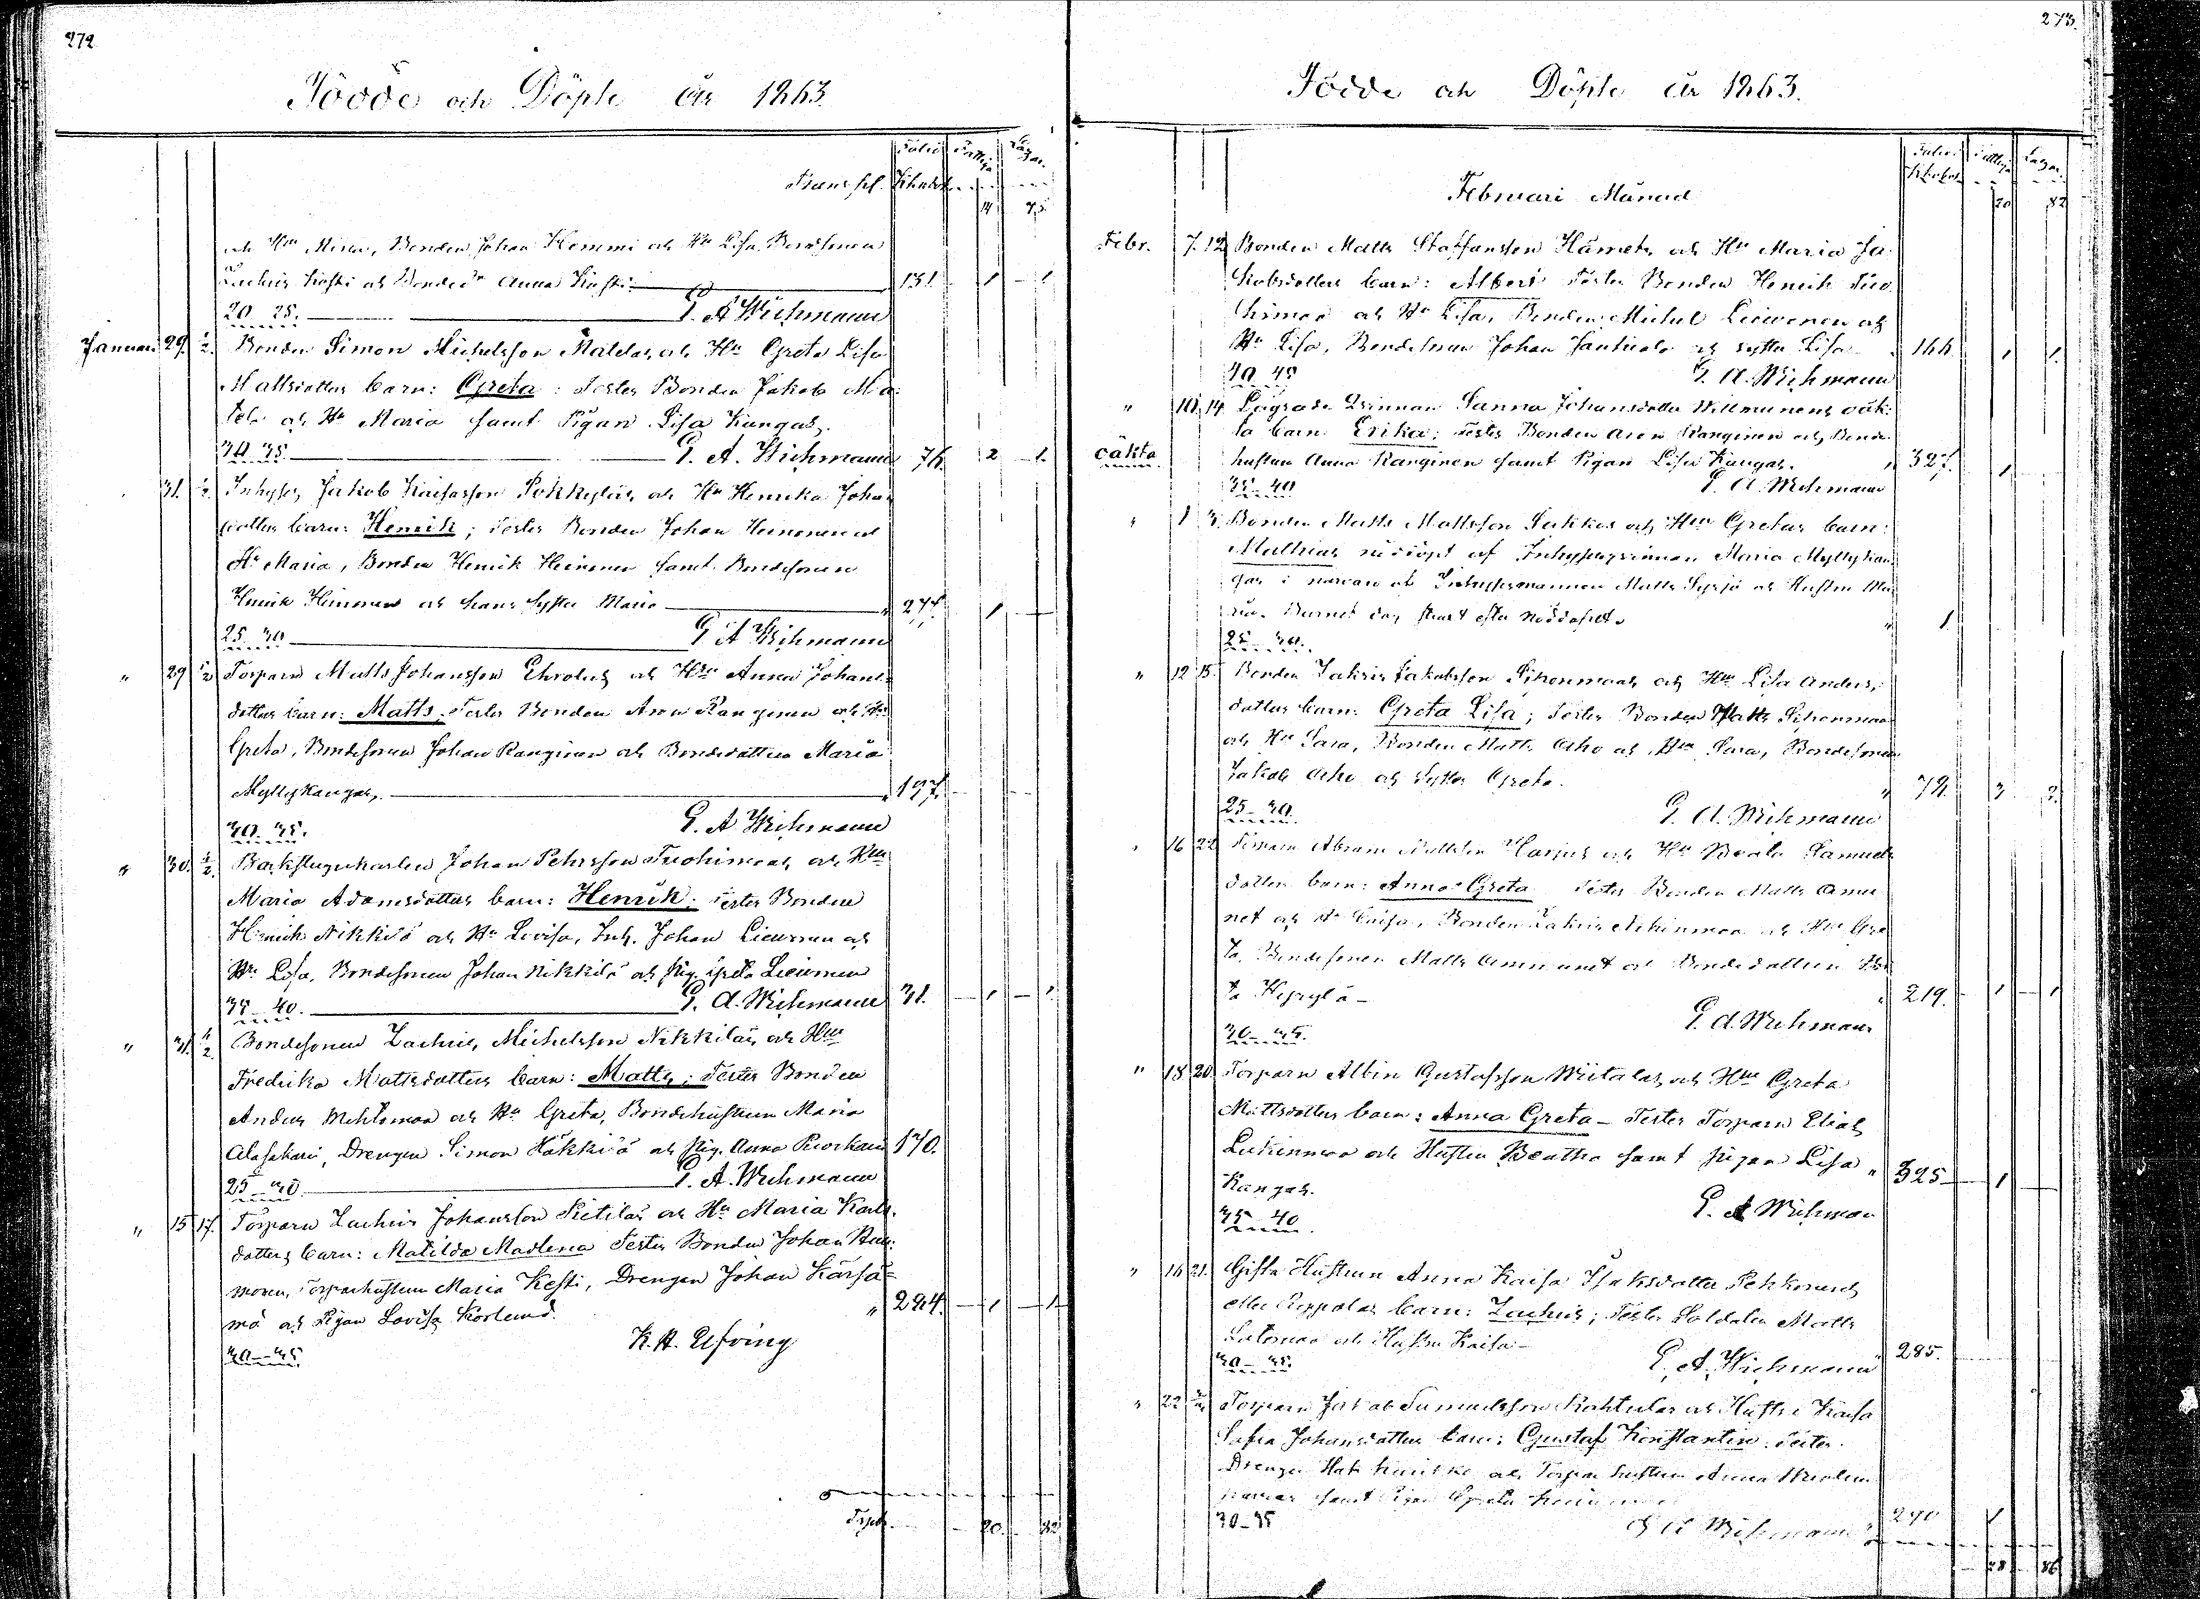 272
Födde och Döpte år 1863.
Folio Fattiga Lagar.
Transpt. Khubok
14 75
och Hu Maria, Bonden Johan Kemmi och Hu Lisa, Bondesonen
Zachris Koski och Bonded:r Anna Koski 131. 1 1
20 25. G. A Wichmann
Januari 29. 1/2. Bonden Simon Michelsson Matelas och Hu Greta Lisa
Mattsdotters barn: Greta: Testes Bonden Jakob Ma-
tela och Hu Maria samt Pigan Lisa Kangas.
30 35. G. A. Wichmann 76. 2 1.
31. 1/2. Inhyses Jakob Kaisasson Pokkylas och Hu Henrika Johans
dotters barn: Henrik; Testes Bonden Johan Heinonen och
Hu Maria, Bonden Henrik Heinonen samt Bondesonen
Henrik Heinonen och hans syster Maria " 277. 1
25 30 G A Wichmann
" 29 1/2 Torparn Matts Johansson Ehrolas och Hru Anna Johans
dotters barn: Matts. Testes Bonden Aron Kanginen och Hu
Greta, Bondesonen Johan Kanginen och Bondedottren Maria
Myllykangas. " 197.
30. 35. G. A Wichmann
" 30. 1/2. Backstugukarlen Johan Pehrsson Tuohimaas och Hu
Maria Adamsdotters barn: Henrik. Testes Bonden
Henrik Nikkilä och Hu Lovisa, Inh. Johan Liewonen och
Hu Lisa, Bondesonen Johan Nikkilä och Pig. Greta Liewonen
35 40. G. A. Wichmann 31. 1 1.
" 31. 1/2. Bondesonen Zachris Michelsson Nikkiläs och Hu
Fredrika Mattsdotters barn: Matts; Testes Bonden
Anders Mehtomaa och Hu Greta, Bondehustrun Maria
Alasakari, Drengen Simon Häkkilä och Pig. Anna 170.
25 30 G. A. Wichmann
" 15 17. Torparn Zachris Johansson Pietilas och Hu Maria Karls-
dotters barn: Matilda Madlena Testes Bonden Johan
monen, Torparhustrun Maria Kesti, Drengen Johan Kärsä=
mä och Pigan Lovisa Korlund. " 294. 1 1
30-35 K. A. Elfving
Trpt. 20. 82
273.
Födde och Döpte år 1863.
Folio Fattiga Lagar.
Khubok
Februari Månad
20 82
Febr. 7. 12 Bonden Matts Staffansson Hämets och Hu Maria Ja
kobsdotters barn: Albert Testes Bonden Henrik Tuo
himaa och Hu Lisa, Bonden Michel Liewonen och
Hu Lisa, Bondesonen Johan Jantuala och syster Lisa " 166 1 1.
40 45 G. A. Wichmann
" 10. 14. Lägrade Qvinnan Sanna Johansdotter Willmunens oäk-
ta barn: Erika: Testes Bonden Aron Kanginen och Bonde-
oäkta hustrun Anna Kanginen samt Pigan Lisa Kangas. " 327. 1
35 40 G. A. Wichmann
" 1 Bonden Matts Mattsson Sakkos och Hu Gretas barn:
Mathias nöddöpt af Inhysesqvinnan Maria Myllykan
gas i närvaro af Inhysesmannen Matts Syrjä och Hustru Ma
ria. Barnet dog straxt efter nöddopet. " 1
25 30.
" 12 15. Bonden Zakris Jakobsson Pihonmaas och Hu Lisa Anders-
dotters barn: Greta Lisa; Testes Bonden Matts Pihonmaa
och Hu Sara, Bonden Matts Aho och Hu Sara, Bondesonen
Jakob Aho och Syster Greta. " 72. 3 2.
25 30. G. A. Wichmann
" 16 22 Timmern Abram Harjus och Hu Beata Samuels
dotters barn: Anna Greta Testes Bonden Matts Amu
net och Hu Caisa, Bonden Zakris och Hu Gre
ta, Bondesonen Matts och Bondedottren Gre
ta Kypylä - " 219. 1 1
30-35. G. A. Wichmann
" 18 20. Torparn Albin Gustafsson Wiitalas och Hu Greta
Mattsdotters barn: Anna Greta - Testes Torparn Elias
Leskinmaa och Hustru Beatha samt pigan Lisa " 325 1
Kangas.
35 40. G. A Wichman
" 16 21. Gifta Hustrun Anna Kaisa Isaksdotter Pekkonens
eller Peppolas barn: Zachris; Testes Soldaten Matts
Satomaa och Hustru Kaisa - " 285.
30-35. G. A. Wichmann
" 22 Torparn Jakob Samuelsson Rahtulas och Hustru Kaisa
Sofia Johansdotters barn: Gustaf Konstantin. Testes
Drengen och Torpar hustrun Anna
samt Pigan Greta 290 1
30-35 G A Wichmann
28 86